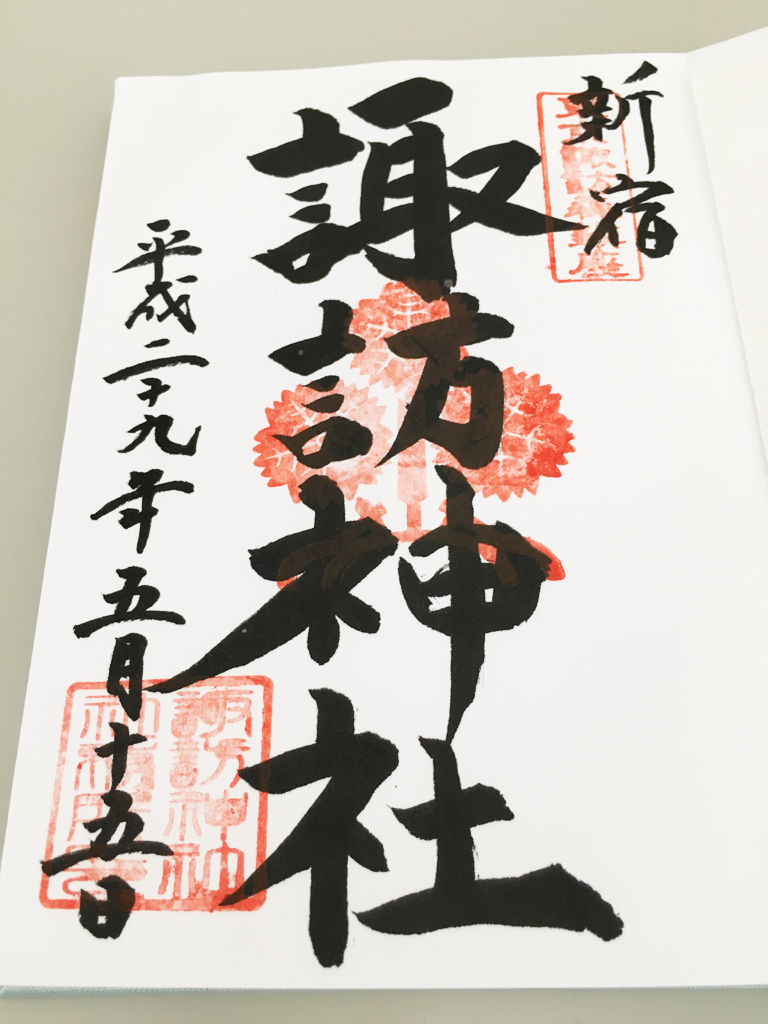 新宿
諏訪神社
平成二十九年五月十五日
諏訪神社